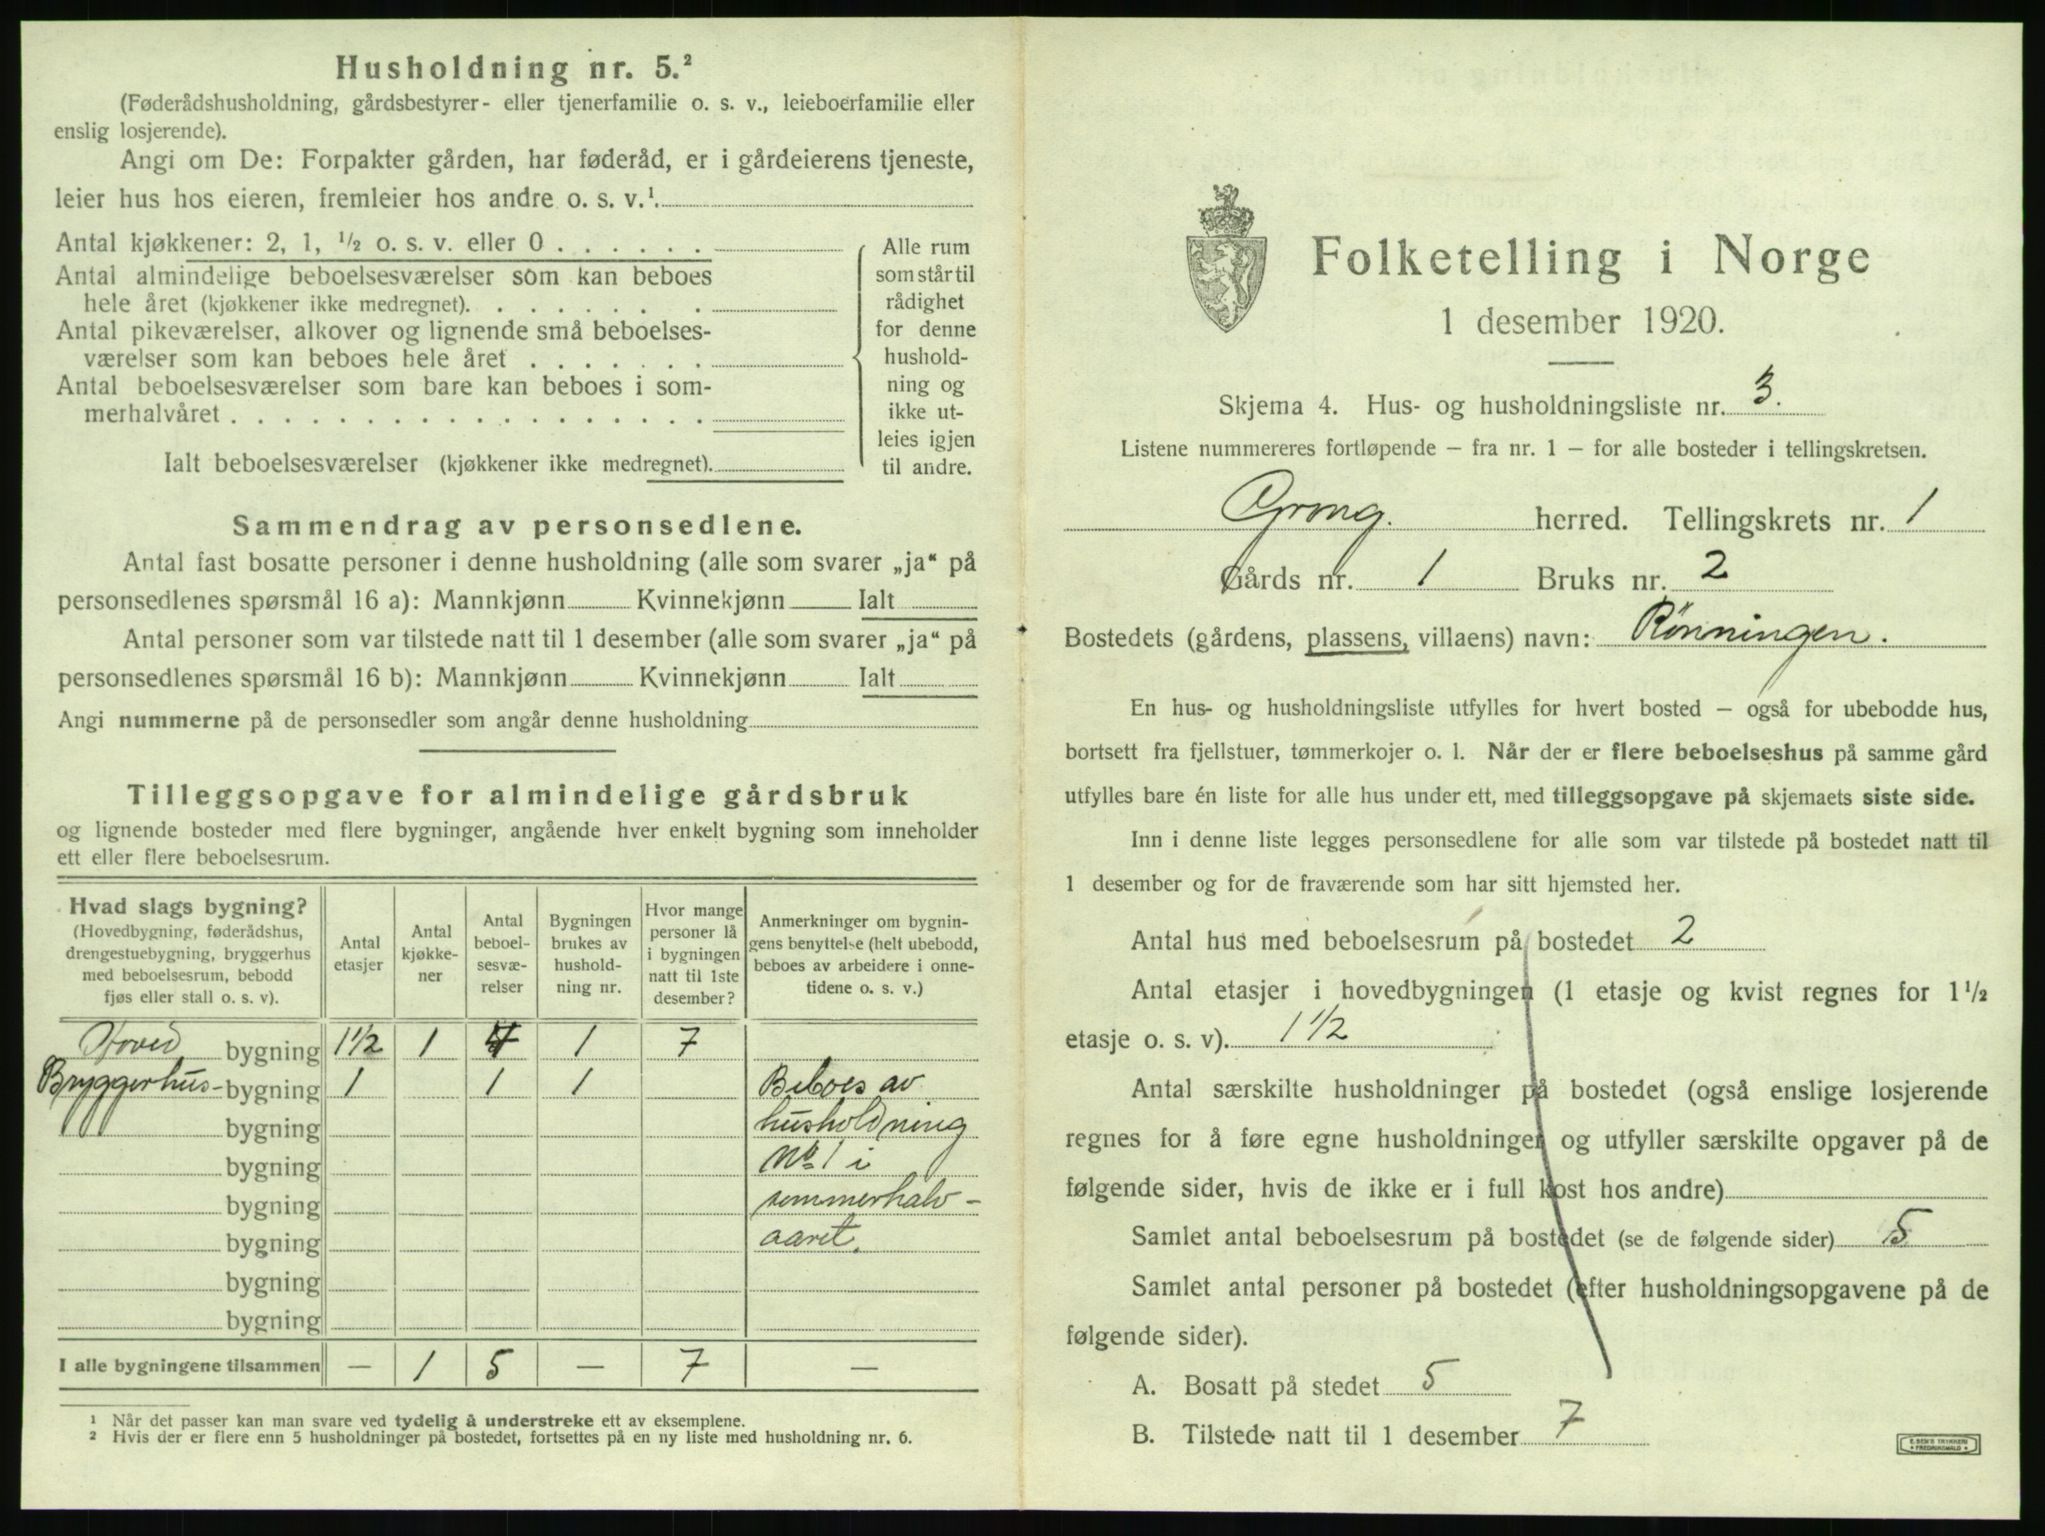 Husholdning nr. 5.²
(Føderådshusholdning, gårdsbestyrer- eller tjenerfamilie o. s. v., leieboerfamilie eller
enslig losjerende).
Angi om De: Forpakter gården, har føderåd, er i gårdeierens tjeneste,
leier hus hos eieren, fremleier hos andre o. s. v.¹
Antal kjøkkener: 2, 1, ½ o. s. v. eller 0 . . . . . .
Antal almindelige beboelsesværelser som kan beboes
hele året (kjøkkener ikke medregnet). . . . . . . .
Antal pikeværelser, alkover og lignende små beboelses-
værelser som kan beboes hele året . . . . . . .
Antal beboelsesværelser som bare kan beboes i som-
merhalvåret . . . . . . . . . . . . . . . . . .
Ialt beboelsesværelser (kjøkkener ikke medregnet).
Alle rum
som står til
rådighet
for denne
hushold-
ning og
ikke ut-
leies igjen
til andre.
Sammendrag av personsedlene.
Antal fast bosatte personer i denne husholdning (alle som svarer „ja“ på
personsedlenes spørsmål 16 a): Mannkjønn Kvinnekjønn Ialt
Antal personer som var tilstede natt til 1 desember (alle som svarer „ja“ på
personsedlenes spørsmål 16 b): Mannkjønn Kvinnekjønn Ialt
Angi nummerne på de personsedler som angår denne husholdning
Tilleggsopgave for almindelige gårdsbruk
og lignende bosteder med flere bygninger, angående hver enkelt bygning som inneholder
ett eller flere beboelsesrum.
Hvad slags bygning?
(Hovedbygning, føderådshus,
drengestuebygning, bryggerhus
med beboelsesrum, bebodd
fjøs eller stall o. s. v).
Antal
etasjer
Antal
kjøkke-
ner
Antal
beboel-
sesvæ-
relser
Bygningen
brukes av
hushold-
ning nr.
Hvor mange
personer lå
i bygningen
natt til 1ste
desember?
Anmerkninger om bygnin-
gens benyttelse (helt ubebodd,
beboes av arbeidere i onne-
tidene o. s. v.)
Hoved bygning 1½ 1 4 1 7
Bryggerhus- bygning 1 1 1 Beboes av
bygning husholdning
bygning No 1 i
bygning sommerhalv-
bygning aaret.
bygning
bygning
I alle bygningene tilsammen — 1 5 — 7 —
¹ Når det passer kan man svare ved tydelig å understreke ett av eksemplene.
² Hvis der er flere enn 5 husholdninger på bostedet, fortsettes på en ny liste med husholdning nr. 6.
Folketelling i Norge
1 desember 1920.
Skjema 4. Hus- og husholdningsliste nr. 3.
Listene nummereres fortløpende – fra nr. 1 – for alle bosteder i tellingskretsen.
Grong. herred. Tellingskrets nr. 1
Gårds nr. 1 Bruks nr. 2
Bostedets (gårdens, plassens, villaens) navn: Rønningen.
En hus- og husholdningsliste utfylles for hvert bosted – også for ubebodde hus,
bortsett fra fjellstuer, tømmerkojer o. l. Når der er flere beboelseshus på samme gård
utfylles bare én liste for alle hus under ett, med tilleggsopgave på skjemaets siste side.
Inn i denne liste legges personsedlene for alle som var tilstede på bostedet natt til
1 desember og for de fraværende som har sitt hjemsted her.
Antal hus med beboelsesrum på bostedet 2
Antal etasjer i hovedbygningen (1 etasje og kvist regnes for 1½
etasje o. s. v). 1½
Antal særskilte husholdninger på bostedet (også enslige losjerende
regnes for å føre egne husholdninger og utfyller særskilte opgaver på de
følgende sider, hvis de ikke er i full kost hos andre)
Samlet antal beboelsesrum på bostedet (se de følgende sider) 5
Samlet antal personer på bostedet (efter husholdningsopgavene på de
følgende sider).
A. Bosatt på stedet 5
B. Tilstede natt til 1 desember 7